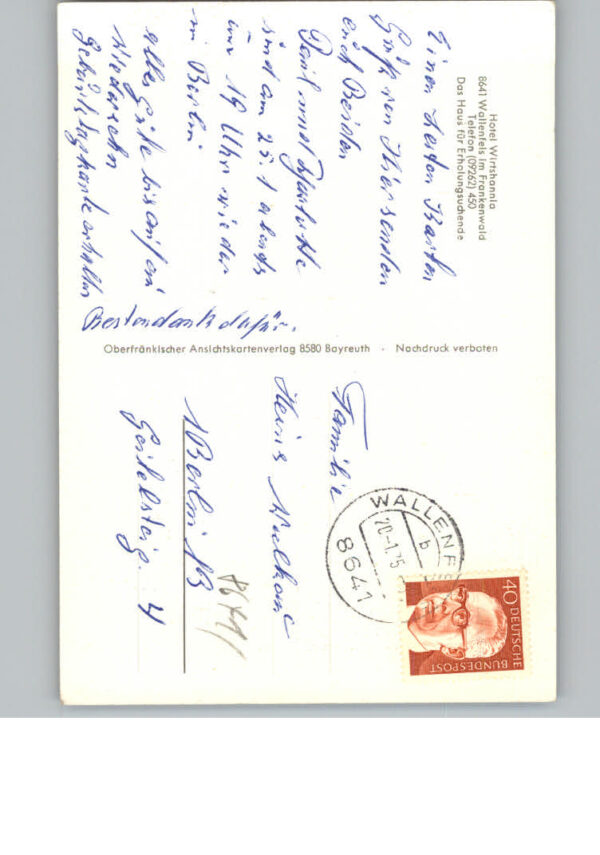 Hotel Wirtshannla
8641 Wallenfels im Frankenwald
Telefon (09262) 450
Das Haus für Erholungsuchende
Einen
Gruß von
euch Beiden
Paul und
sind am 25.1 abends
um 19 Uhr wieder
in Berlin
alles Gute bis auf ein
Wiedersehn
Geburtstagskarte erhalten
Bestendank dafür.
Oberfränkischer Ansichtskartenverlag 8580 Bayreuth · Nachdruck verboten
Familie
Heinz
1 Berlin 13
4
8641
WALLENF
20.-1.75
b
8641
40 DEUTSCHE
BUNDESPOST